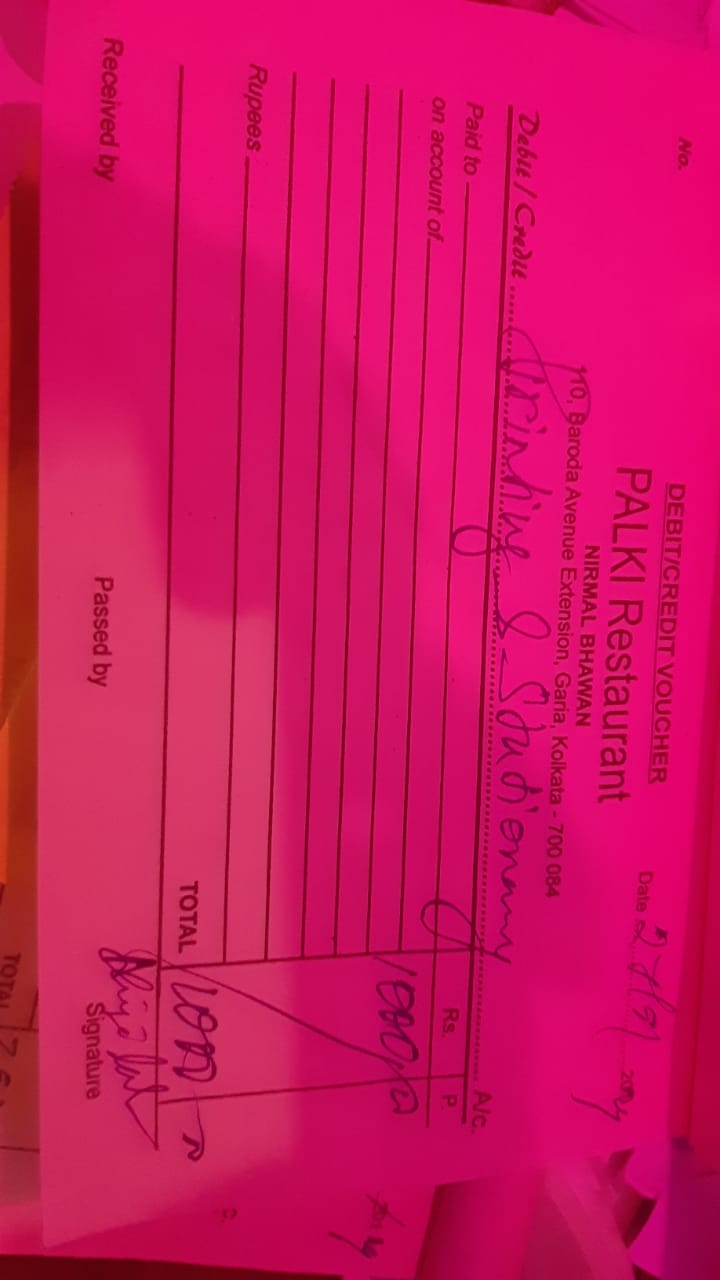 DEBIT/CREDIT VOUCHER
PALKI Restaurant
NIRMAL BHAWAN
110, Baroda Avenue Extension, Garia, Kolkata - 700 084
No.
Date
Debit / Credit Printing & Stationary A/c.
Paid to
on account of
Rs. P.
1000/-
Rupees
TOTAL 1000
Received by Passed by Signature
TOTAL